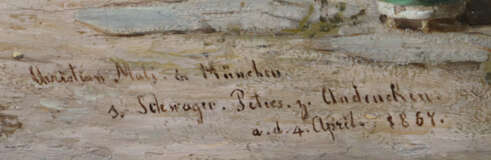 Christian Mali. in München.
s. Schwager. Peters. z. Andencken.
a. d. 4. April. 1857.